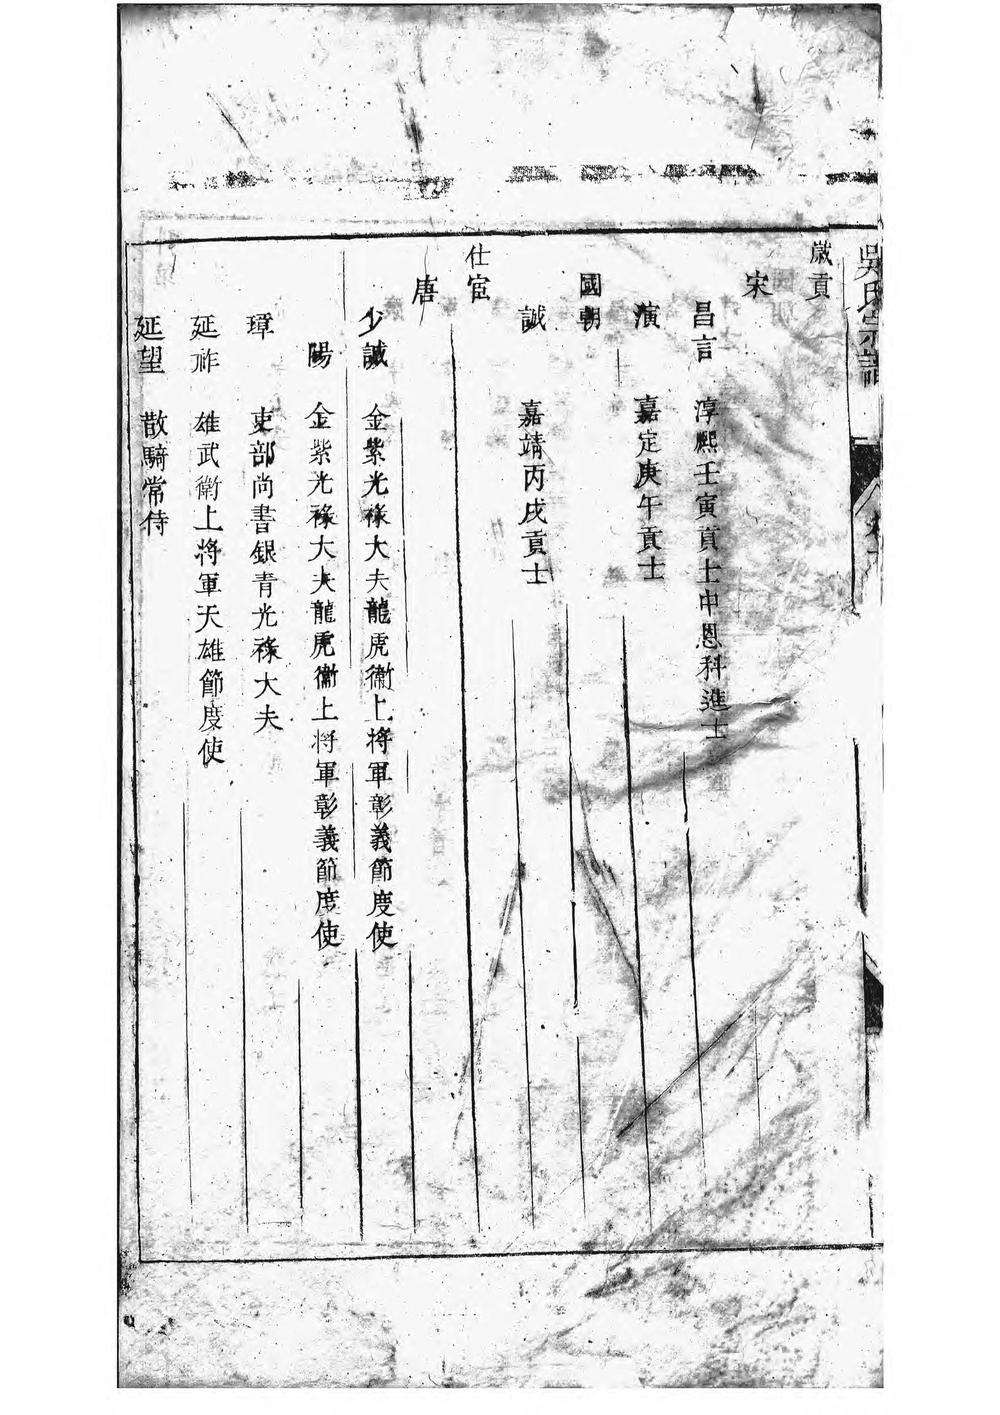 吳氏宗譜
歲貢
宋
昌言 淳熙壬寅貢士中恩科進士
演 嘉定庚午貢士
國朝
誠 嘉靖丙戌貢士
仕宦
唐
少誠 金紫光祿大夫龍虎衞上將軍彰義節度使
陽 金紫光祿大夫龍虎衞上將軍彰義節度使
璋 吏部尚書銀青光祿大夫
延祚 雄武衞上將軍天雄節度使
延望 散騎常侍